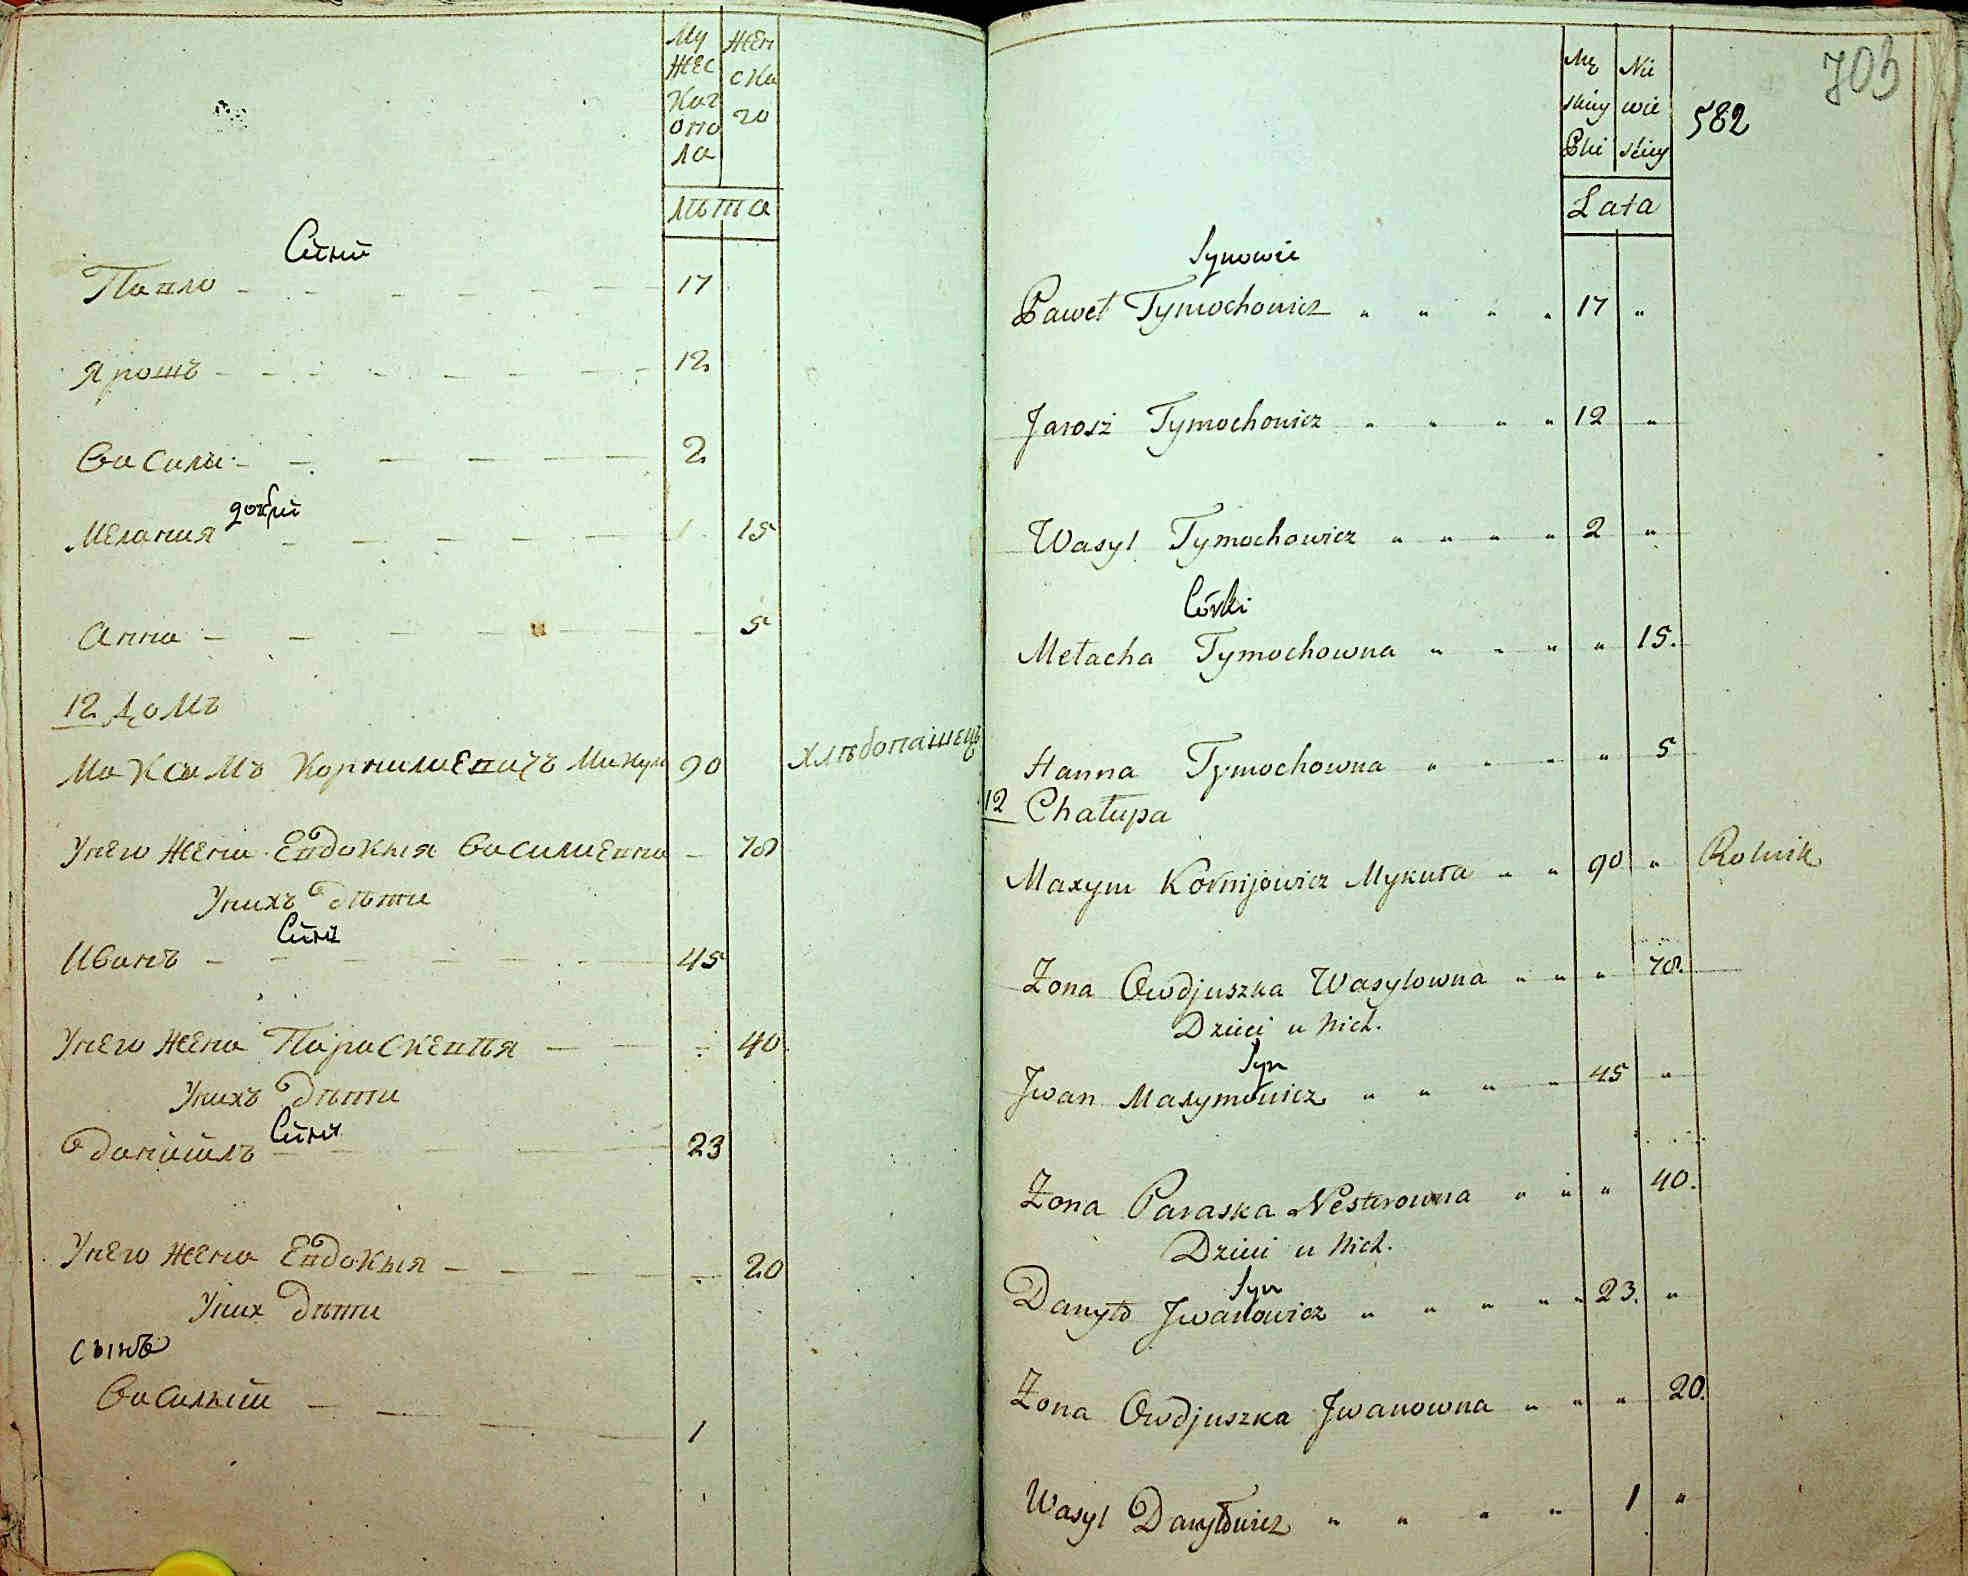 Му
жес
каг
опо
ла
жен
ска
го
лѣта
Сини
Павло 17
Ярошъ 12
Василы 2
дочки
Мелания 15
Анна 5
12 домъ
Максымъ Корнилиевичъ Микула 90 хлѣбопашецъ
Унего жена Евдокыя Василиевна 78
Унихъ дѣти
Синъ
Иванъ 45
Унего жена Параскевѣя 40
Унихъ дѣти
Синъ
данйилъ 23
Унего жена Евдокыя 20
Уних дѣти
сынъ
Василый 1
703
582
Mę
skiey
Płci
Nie
wie
ściey
Lata
Synowie
Paweł Tymochowicz " " " " 17 "
Jarosz Tymochowicz " " " " 12 "
Wasyl Tymochowicz " " " " 2 "
Córki
Mełacha Tymochowna " " " " 15.
Hanna Tymochowna " " " " 5
12 Chałupa
Maxym Kornijowicz Mykuła " " 90 " Rolnik
Żona Owdjuszka Wasylowna " " " 78.
Dzieci u nich.
Syn
Jwan Maxymowicz " " " " 45 "
Żona Paraska Nesterowna " " " 40.
Dzieci u nich.
Syn
Danyło Jwanowicz " " " " " 23. "
Żona Owdjuszka Jwanowna " " " 20.
Wasyl Danyłowicz " " " " 1 "